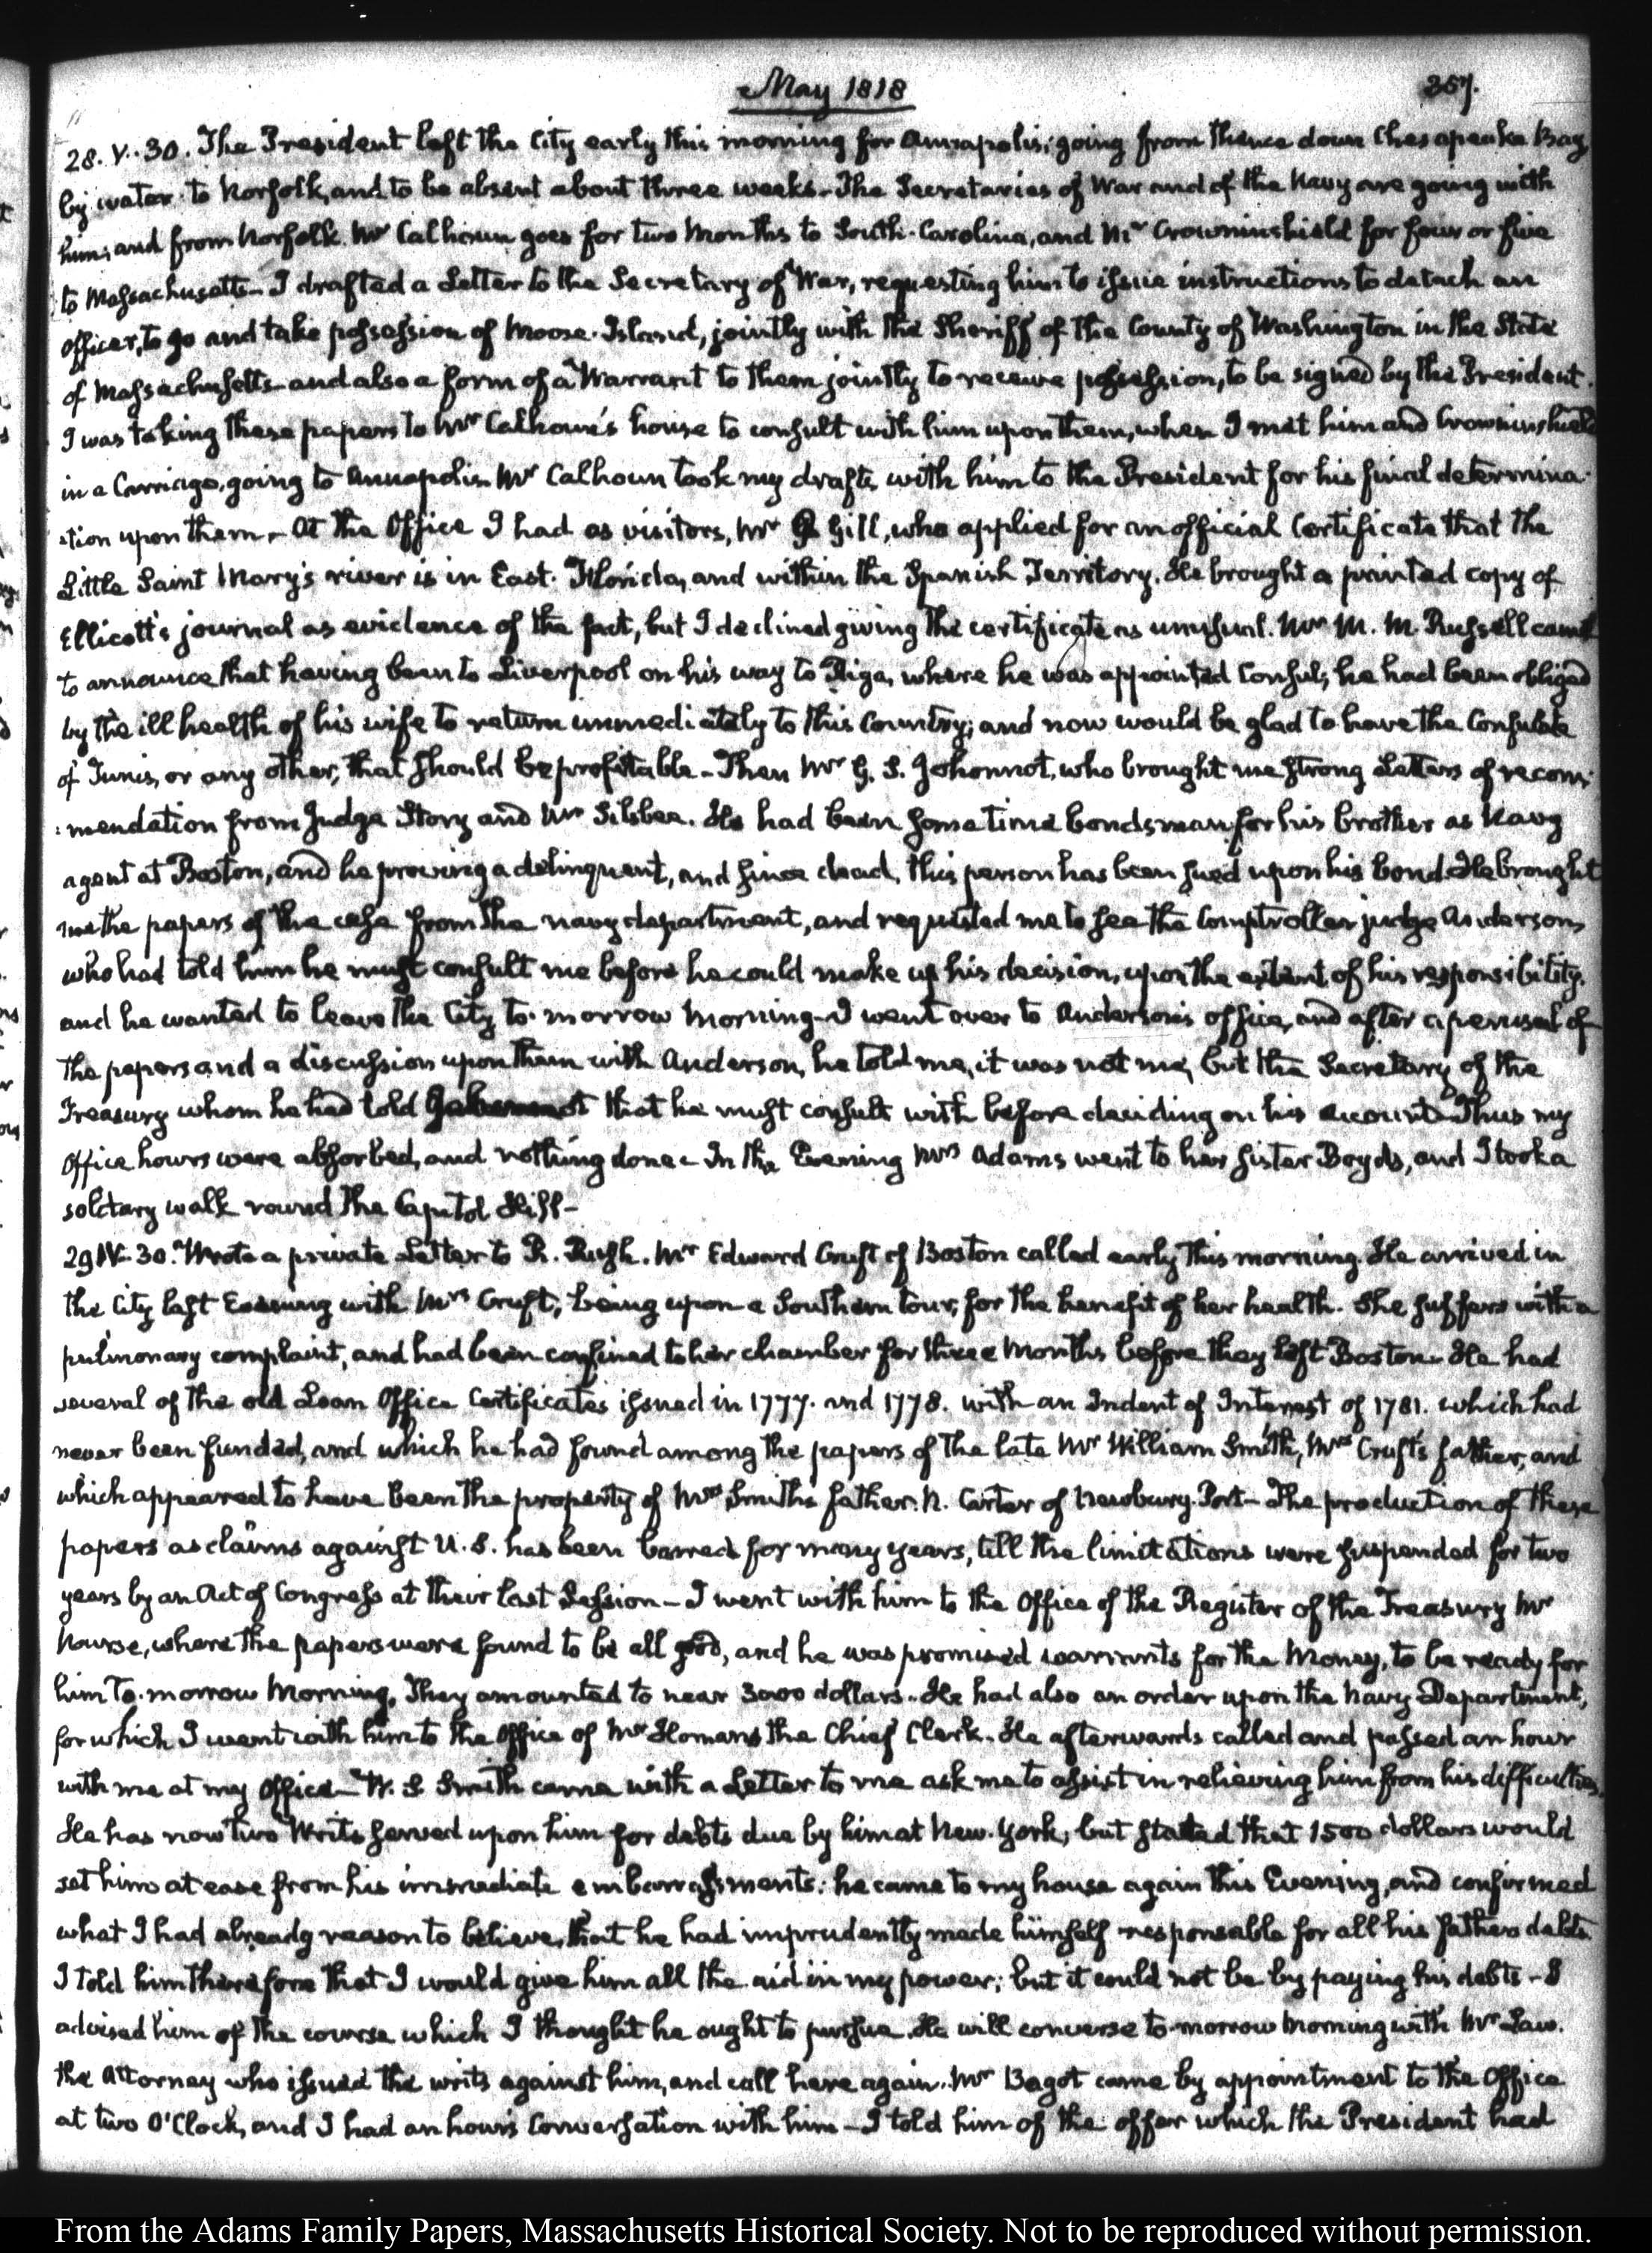 May 1818
357.
28. V. 30. The President left the City early this morning for Annapolis; going from thence down Chesapeake Bay
by water to Norfolk, and to be absent about three weeks. The Secretaries of War and of the Navy are going with
him; and from Norfolk Mr Calhoun goes for two Months to South-Carolina, and Mr Crowninshield for four or five
to Massachusetts. I drafted a Letter to the Secretary of War, requesting him to issue instructions to detach an
Officer, to go and take possession of Moose-Island, jointly with the Sheriff of the County of Washington in the State
of Massachusetts and also a form of a Warrant to them jointly to receive possession, to be signed by the President.
I was taking these papers to Mr Calhoun's house to consult with him upon them, when I met him and Crowninshield
in a Carriage, going to Annapolis. Mr Calhoun took my drafts with him to the President for his final determina-
-tion upon them. At the Office I had as visitors, Mr Gill, who applied for an official Certificate that the
Little Saint Mary's river is in East-Florida, and within the Spanish Territory. He brought a printed copy of
Ellicott's journal as evidence of the fact, but I declined giving the certificate as unusual. Mr M. M. Russell came
to announce that having been to Liverpool on his way to Riga, where he was appointed Consul, he had been obliged
by the ill health of his wife to return immediately to this Country; and now would be glad to have the Consulate
of Tunis, or any other, that should be profitable. Then Mr G. S. Johonnot, who brought me strong Letters of recom-
-mendation from Judge Story and Mr Silsbee. He had been some time bondsman for his brother as Navy
agent at Boston, and he proving a delinquent, and since dead, this person has been sued upon his bond. He brought
me the papers of the case from the navy department, and requested me to see the Comptroller judge Anderson,
who had told him he must consult me before he could make up his decision, upon the extent of his responsibility.
and he wanted to leave the City to-morrow Morning. I went over to Anderson's office, and after a perusal of
the papers and a discussion upon them with Anderson, he told me, it was not me, but the Secretary of the
Treasury whom he had told Johonnot that he must consult with before deciding on his account. Thus my
Office hours were absorbed, and nothing done. In the Evening Mrs Adams went to her Sister Boyd's, and I took a
solitary walk round the Capitol Hill.
29. IV. 30. Wrote a private Letter to R. Rush. Mr Edward Cruft of Boston called early this morning. He arrived in
the City last Evening with Mrs Cruft, being upon a Southern tour, for the benefit of her health. She suffers with a
pulmonary complaint, and had been confined to her chamber for three Months before they left Boston. He had
several of the old Loan Office Certificates issued in 1777. and 1778. with an Indent of Interest of 1781. which had
never been funded, and which he had found among the papers of the late Mr William Smith, Mrs Cruft's father, and
which appeared to have been the property of Mrs Smith's father. N. Carter of Newbury-Port. The production of these
papers as claims against U.S. has been barred for many years, till the limitations were suspended for two
years by an Act of Congress at their last Session. I went with him to the Office of the Register of the Treasury Mr
Nourse, where the papers were found to be all good, and he was promised warrants for the Money, to be ready for
him to-morrow Morning. They amounted to near 3000 dollars. He had also an order upon the Navy Department,
for which I went with him to the Office of Mr Homans the Chief Clerk. He afterwards called and passed an hour
with me at my Office. W. S Smith came with a Letter to me ask me to assist in relieving him from his difficulties.
He has now two Writs served upon him for debts due by him at New-York, but stated that 1500 dollars would
set him at ease from his immediate embarrassments: he came to my house again this Evening, and confirmed
what I had already reason to believe, that he had imprudently made himself responsable for all his fathers debts.
I told him therefore that I would give him all the aid in my power; but it could not be by paying his debts. I
advised him of the course which I thought he ought to pursue. He will converse to-morrow Morning with Mr Law.
the Attorney who issued the writs against him, and call here again. Mr Bagot came by appointment to the Office
at two O'Clock, and I had an hour's Conversation with him. I told him of the offer which the President had
From the Adams Family Papers, Massachusetts Historical Society. Not to be reproduced without permission.